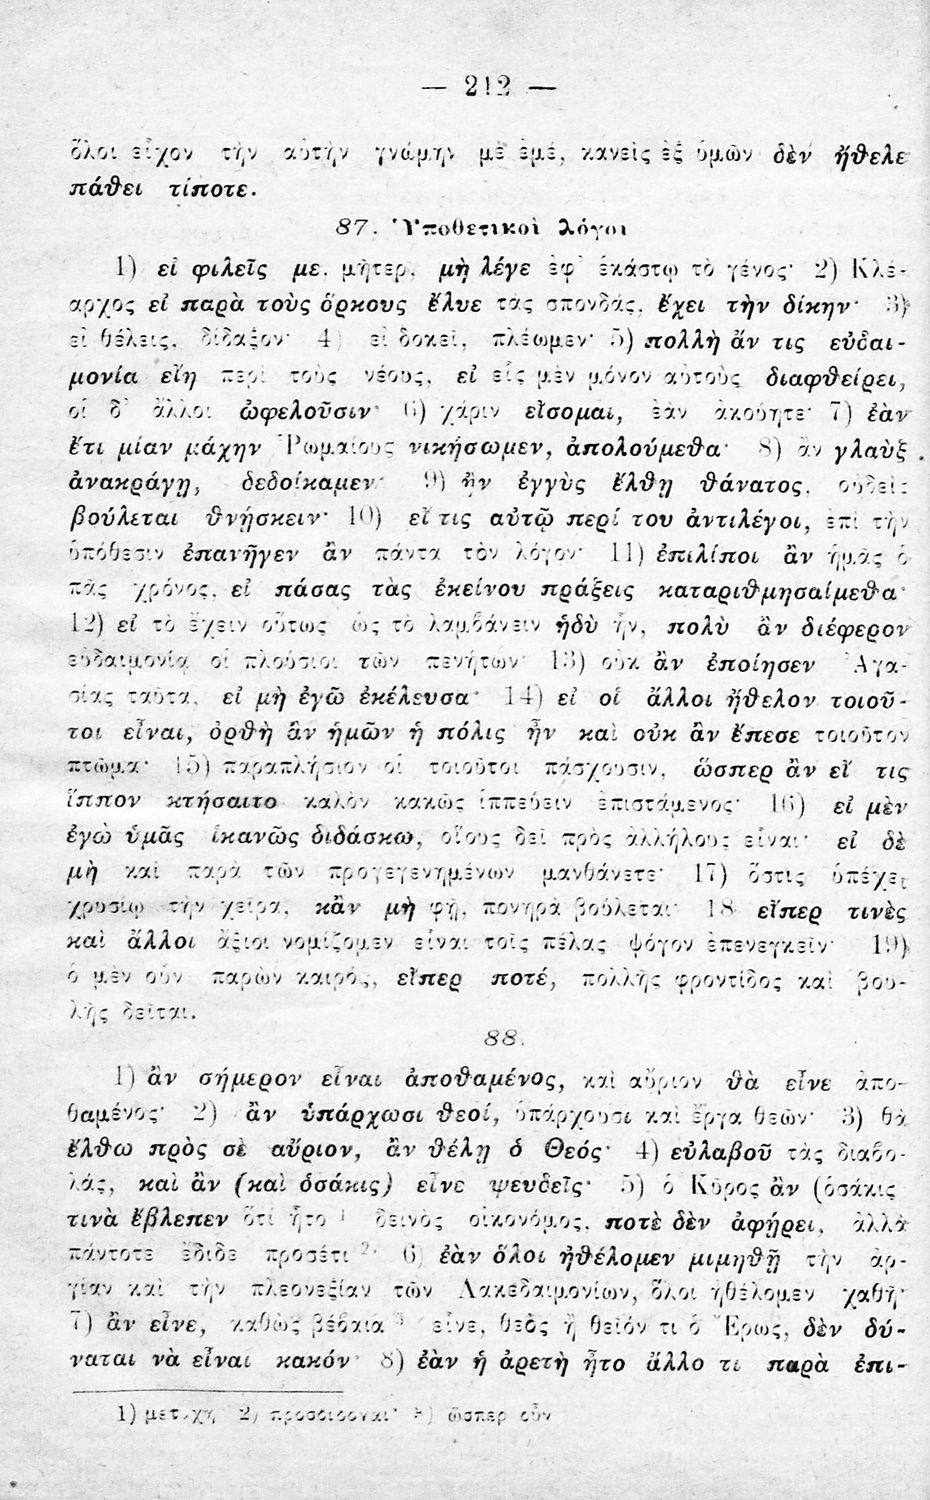 — 212 —
ὅλοι εἶχον τὴν αὐτὴν γνώμην μὲ ἐμέ, κανεὶς ἐξ ὑμῶν δὲν ἤθελε
πάθει τίποτε.
87. Ὑποθετικοὶ λόγοι
1) εἰ φιλεῖς με, μῆτερ, μὴ λέγε ἐφ' ἑκάστῳ τὸ γένος· 2) Κλέ-
αρχος εἰ παρὰ τοὺς ὅρκους ἔλυε τὰς σπονδάς, ἔχει τὴν δίκην· 3)
εἰ θέλεις, δίδαξον· 4) εἰ δοκεῖ, πλέωμεν· 5) πολλὴ ἄν τις εὐδαι-
μονία εἴη περὶ τοὺς νέους, εἰ εἷς μὲν μόνον αὐτοὺς διαφθείρει,
οἱ δ' ἄλλοι ὠφελοῦσιν· 6) χάριν εἴσομαι, ἐὰν ἀκούητε· 7) ἐὰν
ἔτι μίαν μάχην Ῥωμαίους νικήσωμεν, ἀπολούμεθα· 8) ἂν γλαὺξ
ἀνακράγῃ, δεδοίκαμεν· 9) ἢν ἐγγὺς ἔλθῃ θάνατος, οὐδεὶς
βούλεται θνῄσκειν· 10) εἴ τις αὐτῷ περί του ἀντιλέγοι, ἐπὶ τὴν
ὑπόθεσιν ἐπανῆγεν ἂν πάντα τὸν λόγον· 11) ἐπιλίποι ἂν ἡμᾶς ὁ
πᾶς χρόνος, εἰ πάσας τὰς ἐκείνου πράξεις καταριθμησαίμεθα·
12) εἰ τὸ ἔχειν οὕτως ὡς τὸ λαμβάνειν ἡδὺ ἦν, πολὺ ἂν διέφερον
εὐδαιμονίᾳ οἱ πλούσιοι τῶν πενήτων· 13) οὐκ ἂν ἐποίησεν Ἀγα-
σίας ταῦτα, εἰ μὴ ἐγῶ ἐκέλευσα· 14) εἰ οἱ ἄλλοι ἤθελον τοιοῦ-
τοι εἶναι, ὀρθὴ ἂν ἡμῶν ἡ πόλις ἦν καὶ οὐκ ἂν ἔπεσε τοιοῦτον
πτῶμα· 15) παραπλήσιον οἱ τοιοῦτοι πάσχουσιν, ὥσπερ ἂν εἴ τις
ἵππον κτήσαιτο καλὸν κακῶς ἱππεύειν ἐπιστάμενος· 16) εἰ μὲν
ἐγὼ ὑμᾶς ἱκανῶς διδάσκω, οἵους δεῖ πρὸς ἀλλήλους εἶναι· εἰ δὲ
μὴ καὶ παρὰ τῶν προγεγενημένων μανθάνετε· 17) ὅστις ὑπέχει
χρυσίῳ τὴν χεῖρα, κἂν μὴ φῇ, πονηρὰ βούλεται· 18 εἴπερ τινὲς
καὶ ἄλλοι ἄξιοι νομίζομεν εἶναι τοῖς πέλας ψόγον ἐπενεγκεῖν· 19)
ὁ μὲν οὖν παρὼν καιρός, εἴπερ ποτέ, πολλῆς φροντίδος καὶ βου-
λῆς δεῖται.
88.
1) ἂν σήμερον εἶναι ἀποθαμένος, καὶ αὔριον θὰ εἶνε ἀπο-
θαμένος· 2) ἂν ὑπάρχωσι θεοί, ὑπάρχουσι καὶ ἔργα θεῶν· 3) θὰ
ἔλθω πρὸς σὲ αὔριον, ἂν θέλῃ ὁ Θεός· 4) εὐλαβοῦ τὰς διαβο-
λάς, καὶ ἂν (καὶ ὁσάκις) εἶνε ψευδεῖς· 5) ὁ Κῦρος ἂν (ὁσάκις
τινὰ ἔβλεπεν ὅτι ἦτο ¹ δεινὸς οἰκονόμος, ποτὲ δὲν ἀφῄρει, ἀλλὰ
πάντοτε ἔδιδε προσέτι ²· 6) ἐὰν ὅλοι ἠθέλομεν μιμηθῇ τὴν ἀρ-
γίαν καὶ τὴν πλεονεξίαν τῶν Λακεδαιμονίων, ὅλοι ἠθέλομεν χαθῆ·
7) ἂν εἶνε, καθὼς βέβαια ³ εἶνε, θεὸς ἢ θεῖόν τι ὁ Ἔρως, δὲν δύ-
ναται νὰ εἶναι κακόν· 8) ἐὰν ἡ ἀρετὴ ἦτο ἄλλο τι παρὰ ἐπι-
1) μετοχὴ 2) προσδιδόναι· 3) ὥσπερ οὖν